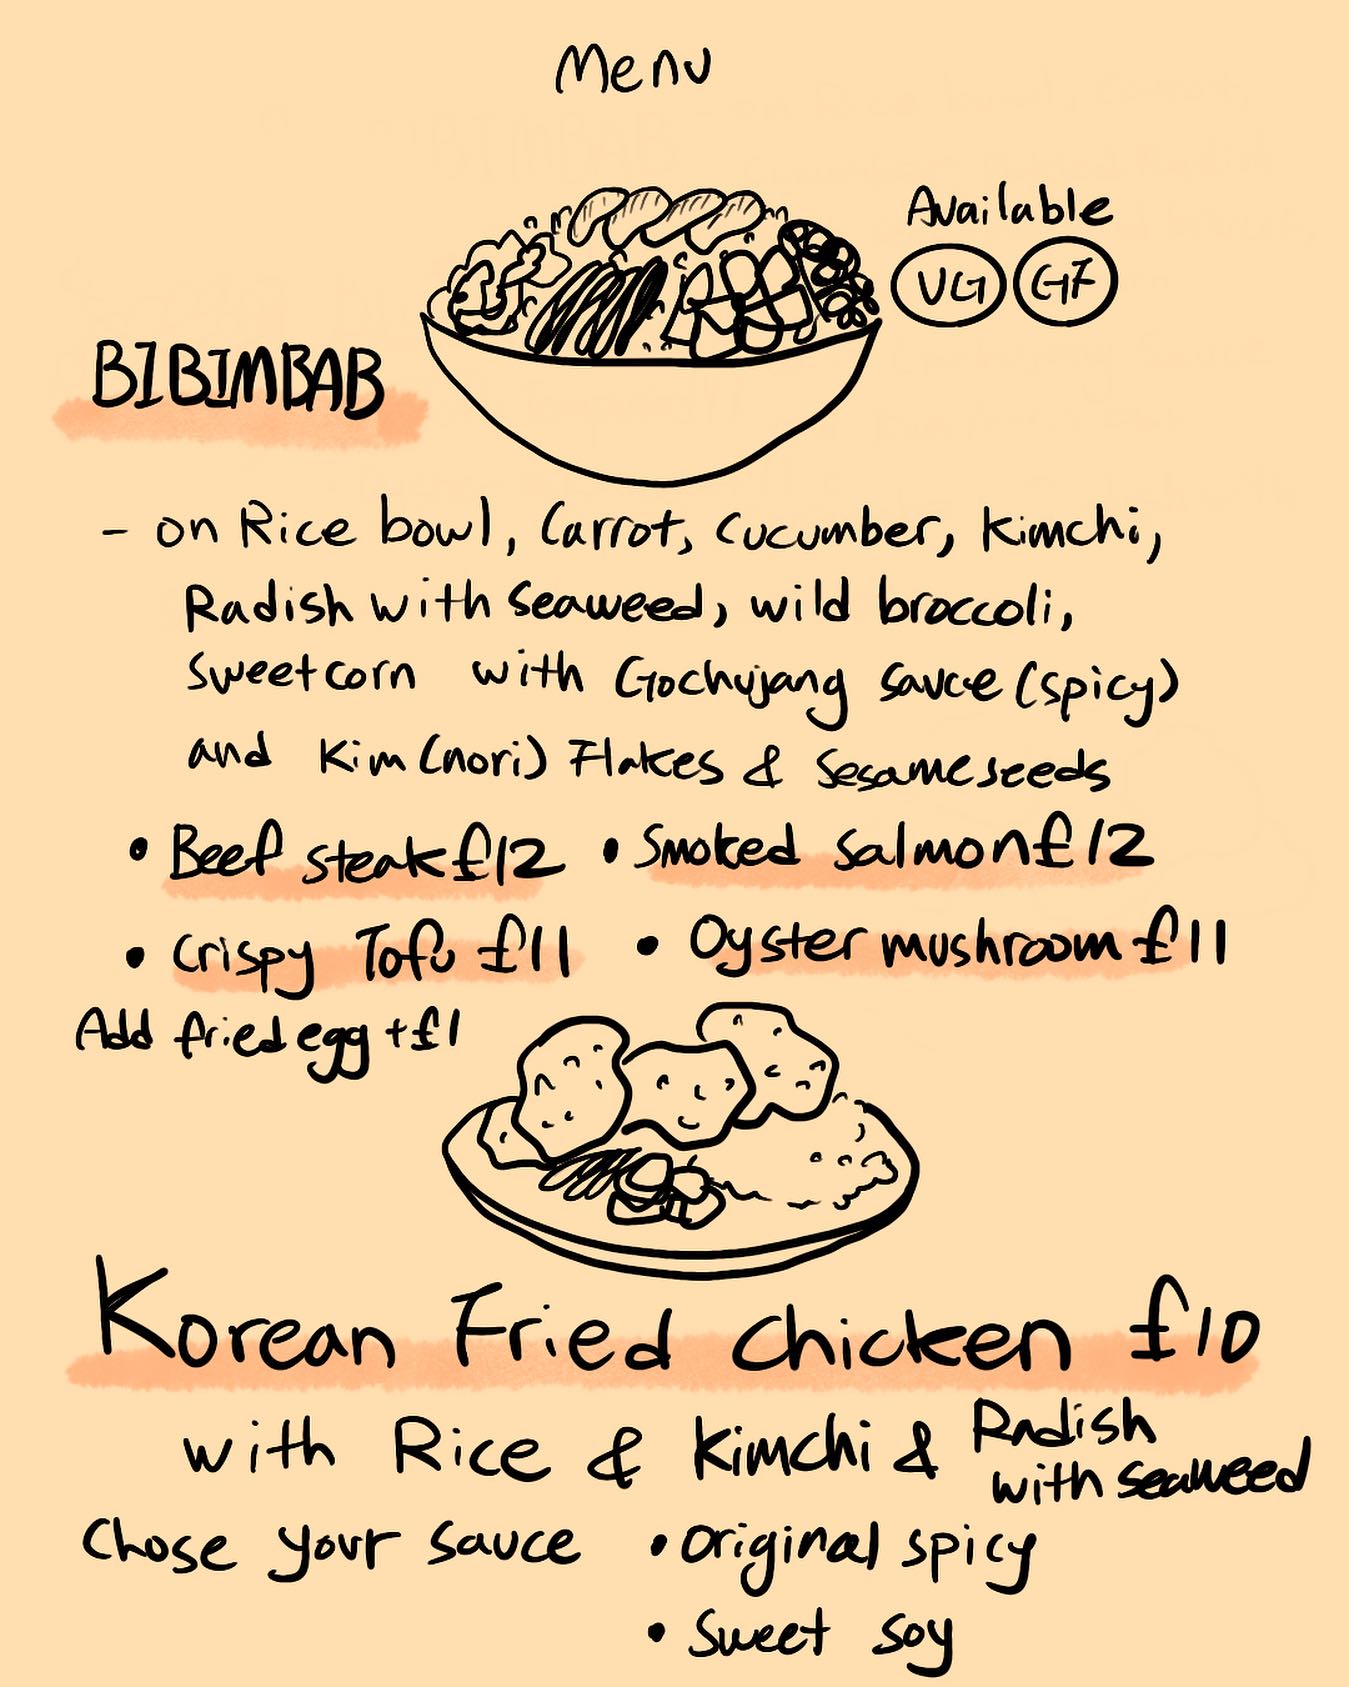 Menu
Available
VG GF
BIBIMBAB
- on Rice bowl, Carrot, Cucumber, Kimchi,
Radish with seaweed, wild broccoli,
Sweetcorn with Gochujang sauce (spicy)
and Kim (nori) Flakes & Sesame seeds
• Beef steak £12 • Smoked salmon £12
• Crispy Tofu £11 • Oyster mushroom £11
Add fried egg +£1
Korean Fried Chicken £10
with Rice & Kimchi & Radish
with seaweed
Chose your sauce • Original spicy
• Sweet soy